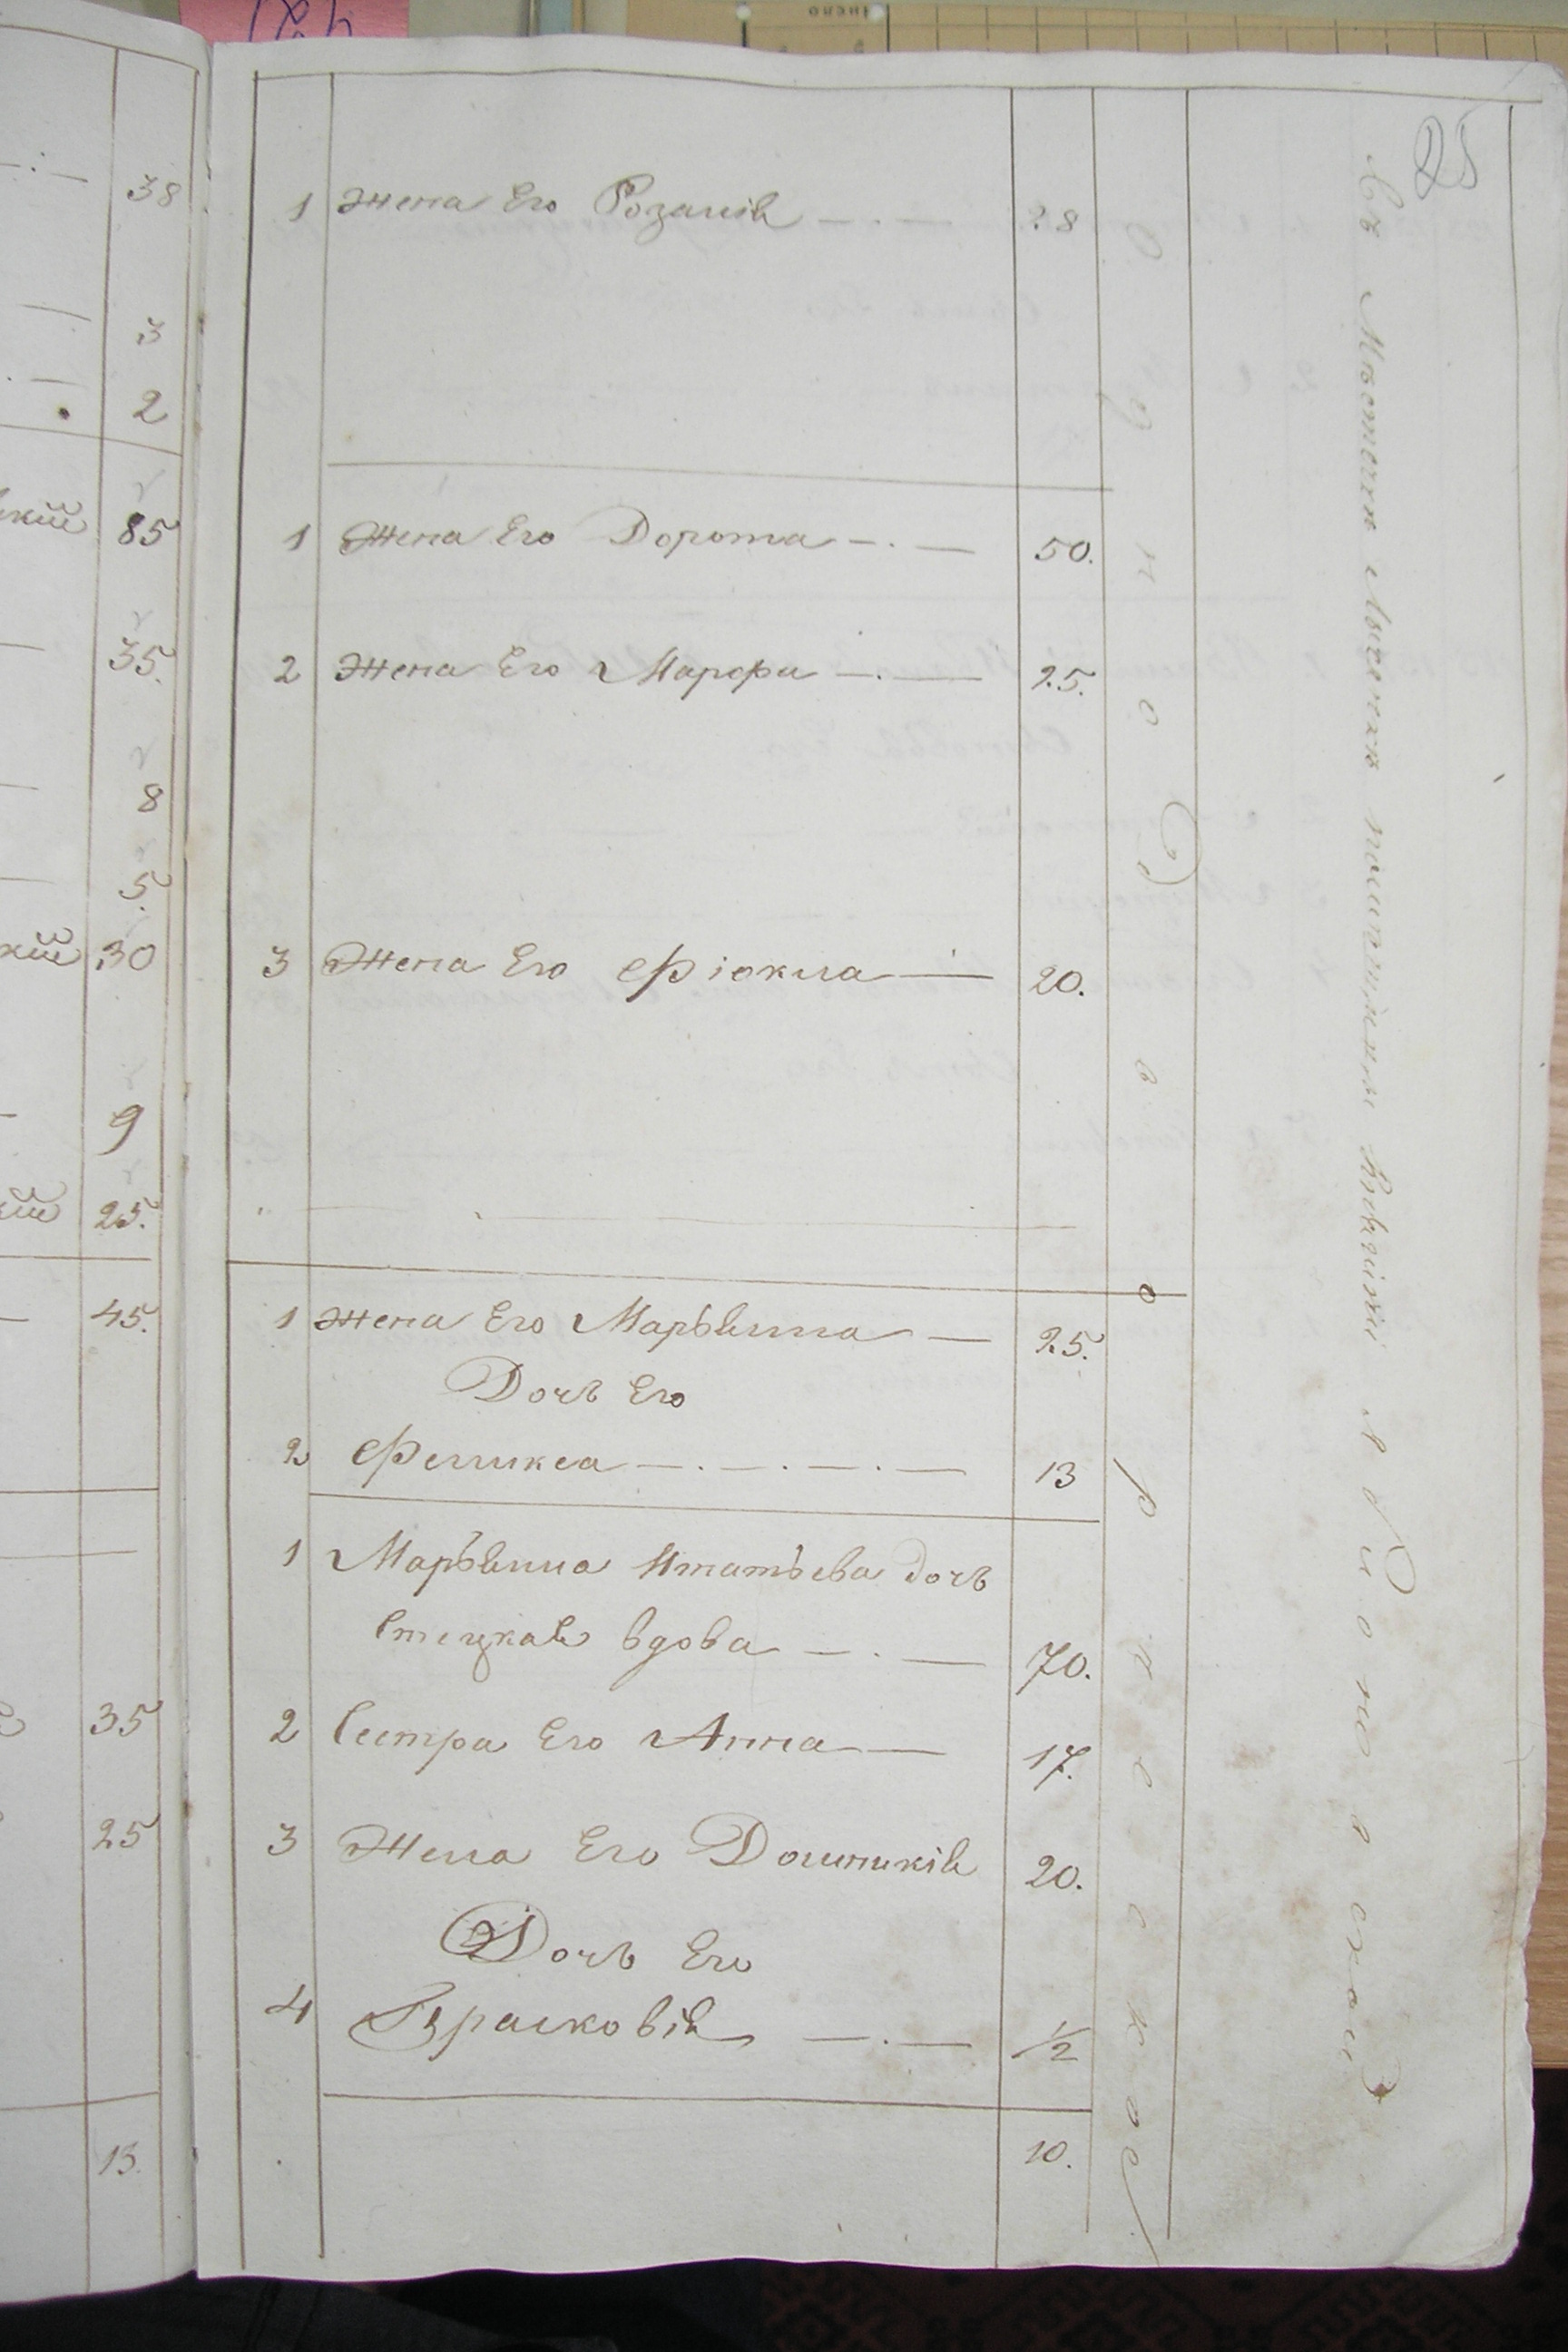 25
1 Жена Его Розалія 28
1 Жена Его Дорота 50.
2 Жена Его Марфа 25.
3 Жена Его Фіокла 20.
1 Жена Его Марьянна 25.
Дочь Его
2 Феликса 13
1 Марьянна Игнатьева дочь
Стецкая вдова 70.
2 Сестра Его Анна 17.
3 Жена Его Доминикія 20.
Дочь Его
4 Парасковія 1/2
10.
Одно Дворческое
Въ Местечке
38
3
2
кій 85
35.
8
5.
кій 30
9
кій 25.
45.
35
25
13